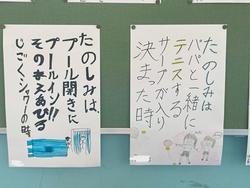 たのしみは
パパと一緒に
テニスする
サーブが入り
決まった時
たのしみは、
プール開きに
プールイン!!
そのまえあびる
じごくシャワーの時